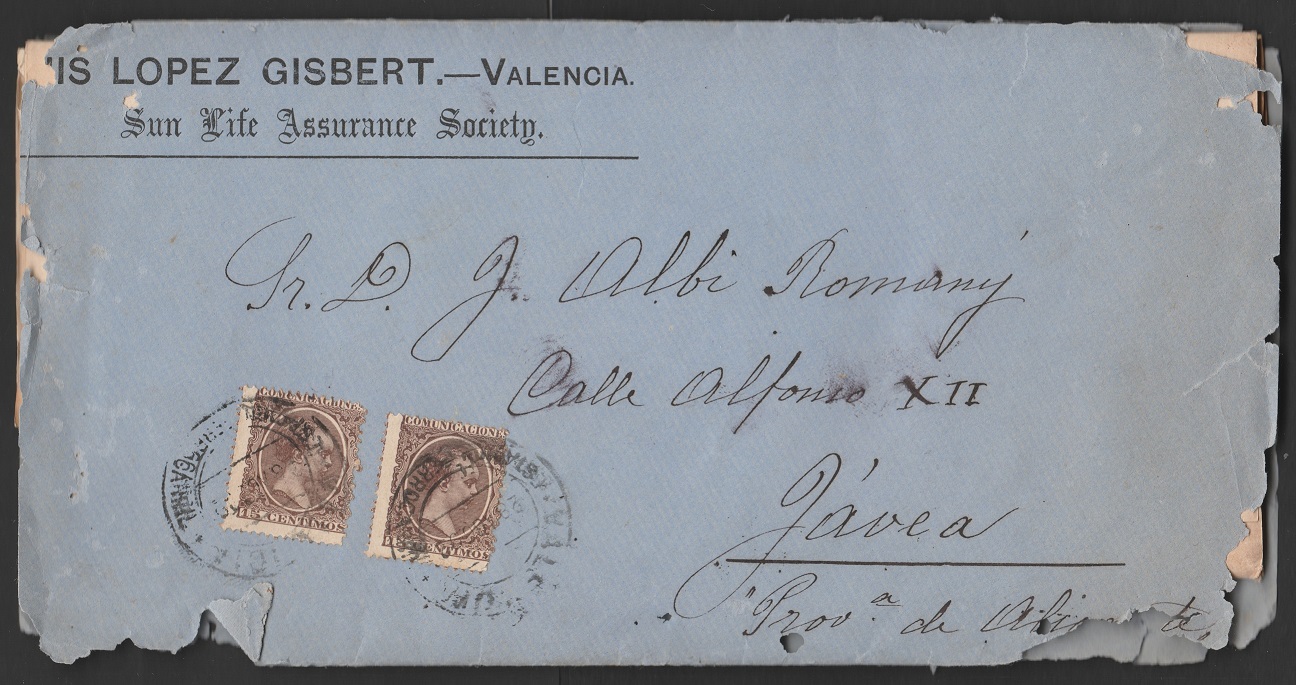 UIS LOPEZ GISBERT.—VALENCIA.
Sun Life Assurance Society.
Sr. D. J. Albi Romaný
Calle Alfonso XII
Jávea
Provª de Alicante
COMUNICACIONES
15 CENTIMOS
COMUNICACIONES
15 CENTIMOS